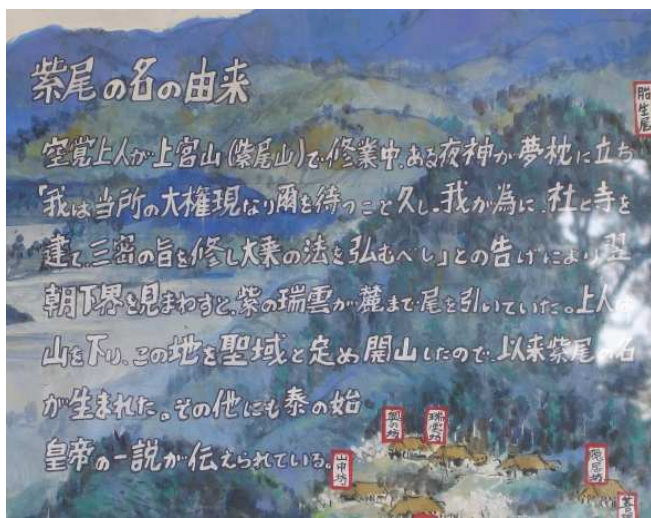 紫尾の名の由来
空覚上人が上宮山(紫尾山)で、修業中、ある夜神が夢枕に立ち
「我は当所の大権現なり爾を待つこと久し。我が為に、社と寺を
建て、三密の旨を修し大乗の法を弘むべし」との告げにより翌
朝下界を見まわすと、紫の瑞雲が麓まで尾を引いていた。上人は
山を下り、この地を聖域と定め開山したので、以来紫尾の名
が生まれた。その他にも泰の始
皇帝の一説が伝えられている。
胎生尾
瑞雲坊
山中坊
隠居坊